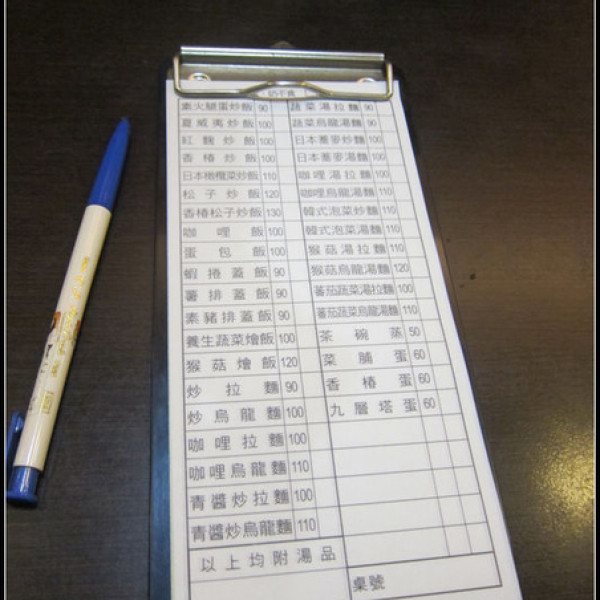 素火腿蛋炒飯 90
夏威夷炒飯 100
紅麴炒飯 100
香椿炒飯 100
日本橄欖菜炒飯 110
松子炒飯 120
香椿松子炒飯 130
咖哩飯 100
蛋包飯 100
蝦捲蓋飯 90
薯排蓋飯 90
素豬排蓋飯 90
養生蔬菜燴飯 100
猴菇燴飯 120
炒拉麵 90
炒烏龍麵 100
咖哩拉麵 100
咖哩烏龍麵 110
青醬炒拉麵 100
青醬炒烏龍麵 110
以上均附湯品
蔬菜湯拉麵 90
蔬菜烏龍湯麵 90
日本蕎麥炒麵 100
日本蕎麥湯麵 100
咖哩湯拉麵 100
咖哩烏龍湯麵 110
韓式泡菜炒麵 110
韓式泡菜湯麵 110
猴菇湯拉麵 110
猴菇烏龍湯麵 120
蕃茄蔬菜湯拉麵 100
蕃茄蔬菜烏龍湯麵 110
茶碗蒸 50
菜脯蛋 60
香椿蛋 60
九層塔蛋 60
桌號